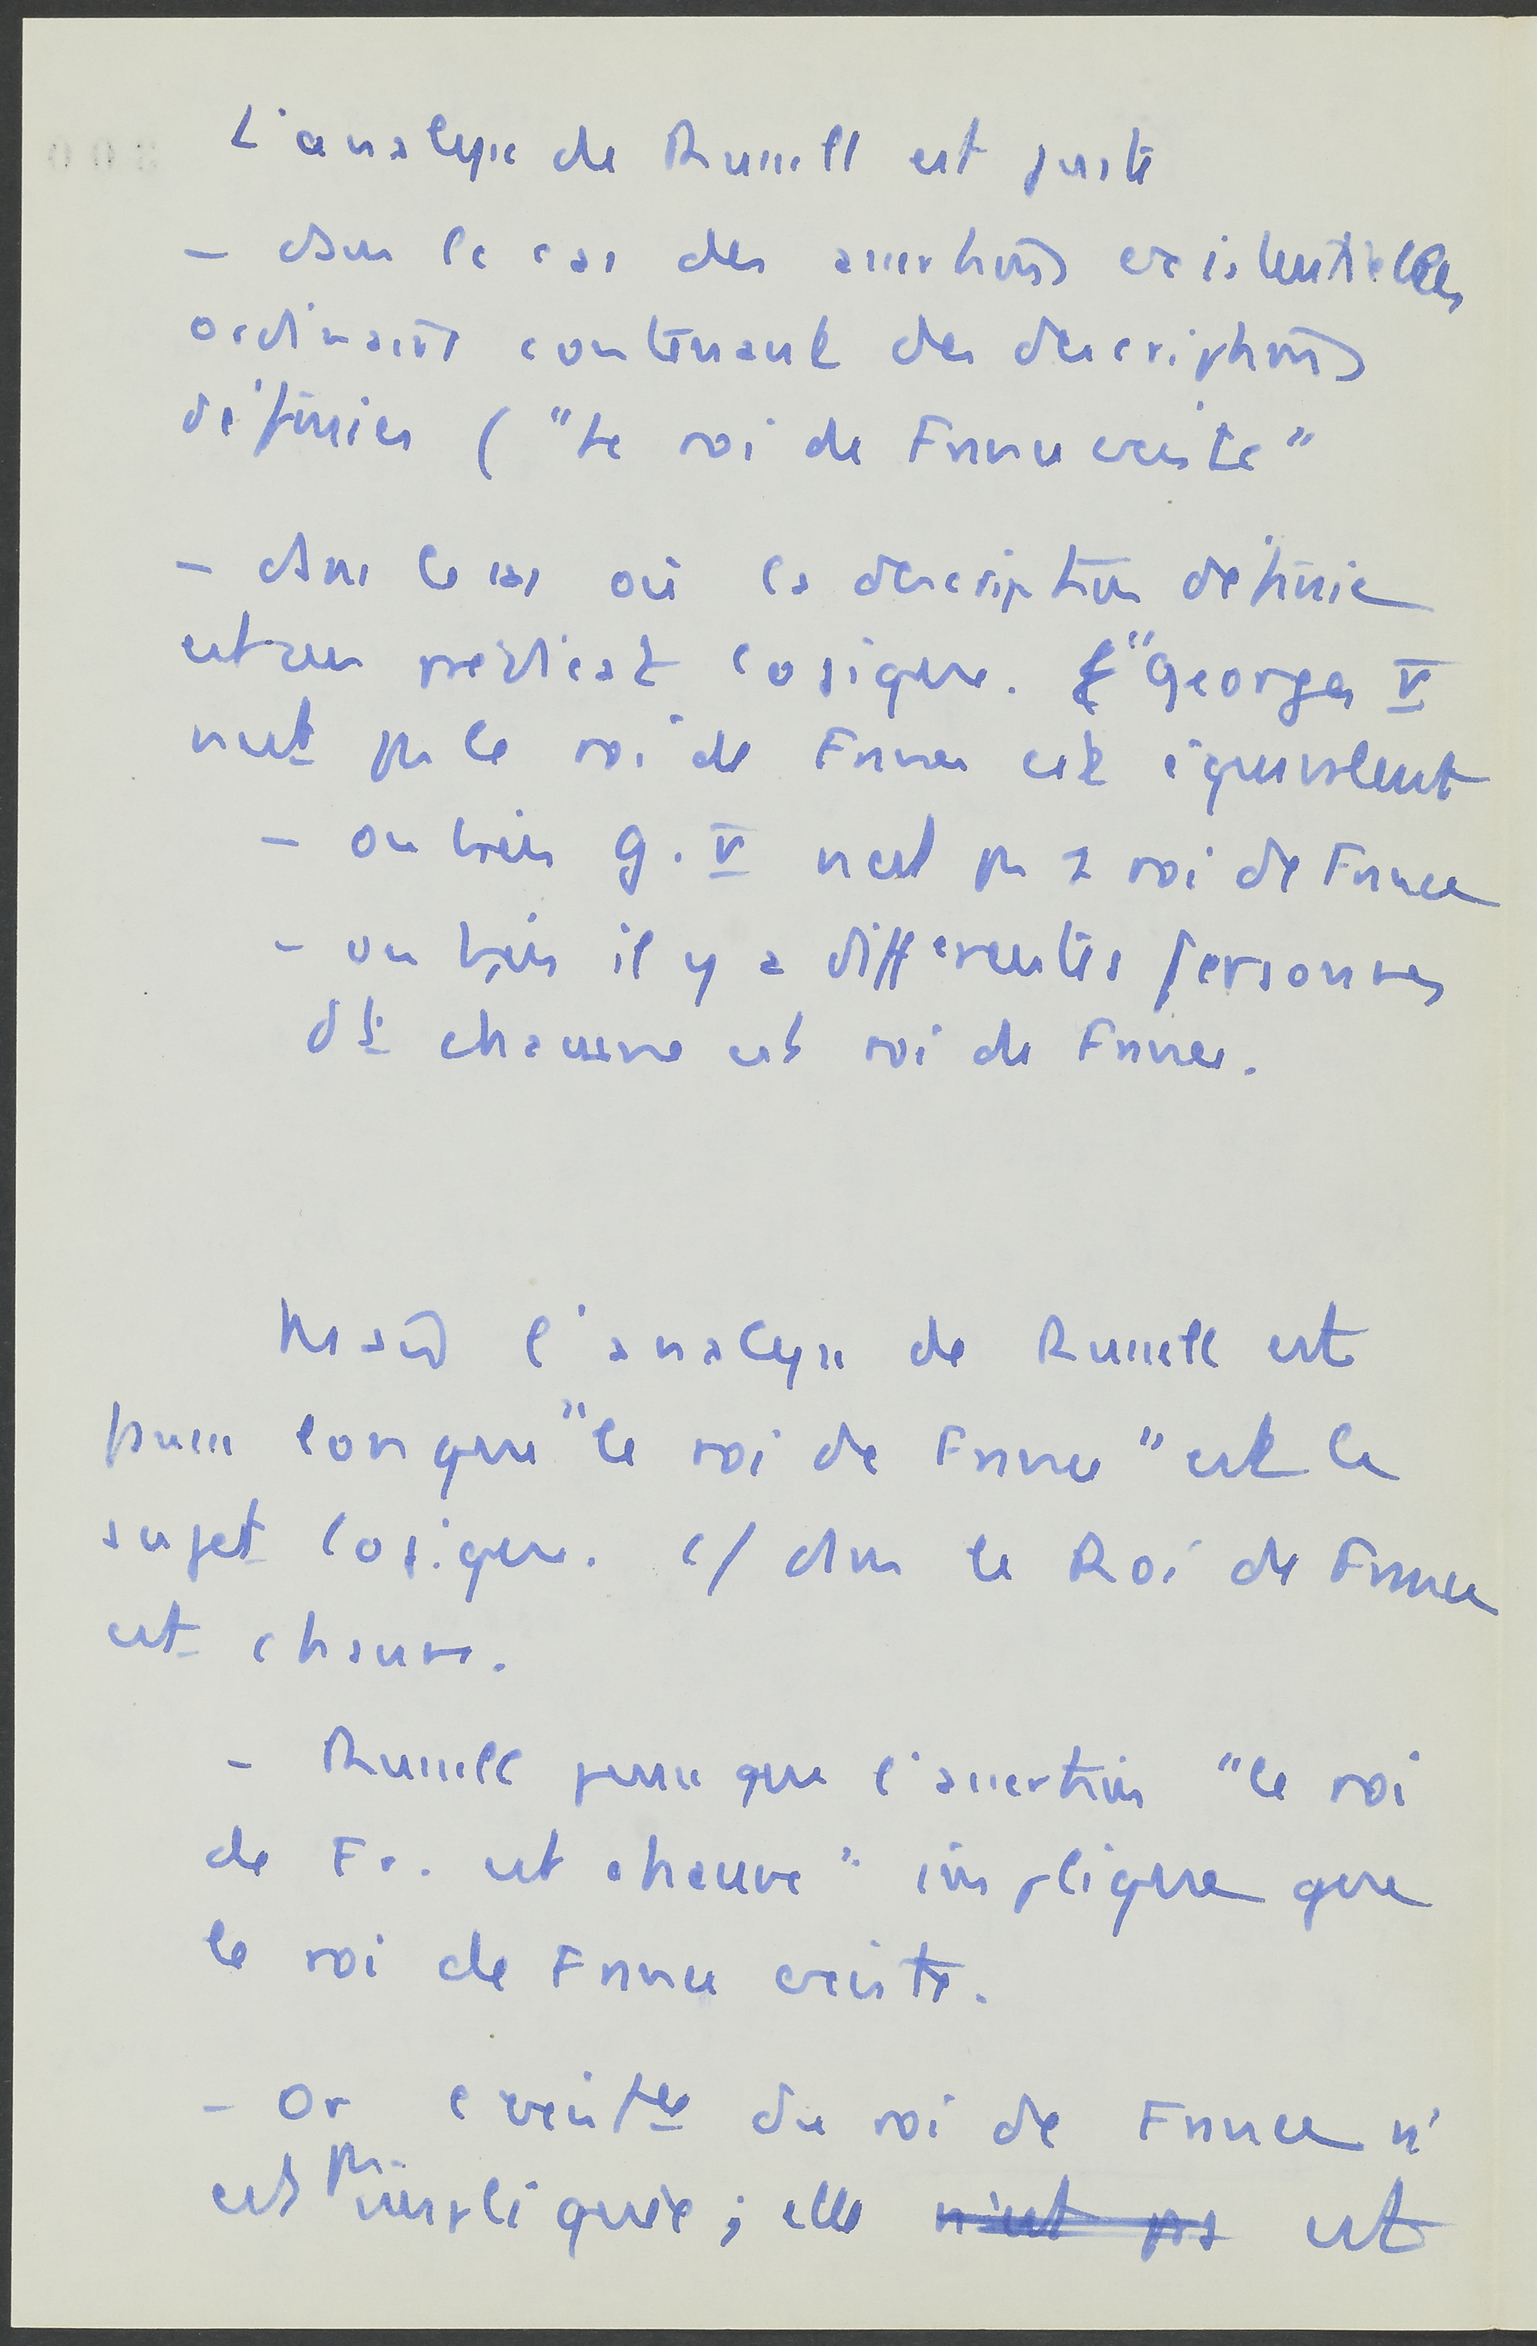 L'analyse de Russell est juste
- dans le cas des assertions existentielles
ordinaires contenant des descriptions
définies ("Le roi de France existe"
- dans le cas où la description définie
est un prédicat logique. "Georges V
n'est pas le roi de France est équivalent
- ou bien G. V n'est pas 1 roi de France
- ou bien il y a différentes personnes
dt chacune est roi de France.
Mais l'analyse de Russell est
fausse lorsque "le roi de France" est le
sujet logique. c/ dans le Roi de France
est chauve.
- Russell pense que l'assertion "le roi
de Fr. est chauve" implique que
le roi de France existe.
- Or l'existce du roi de France n'
est pas impliquée ; elle n'est pas est